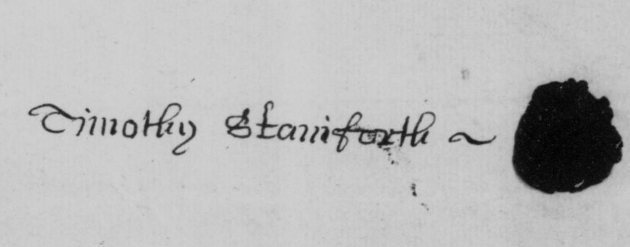 Timothy Staniforth ~